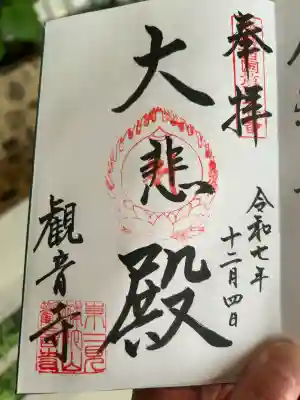 奉拝
令和七年
十二月四日
大悲殿
観音寺